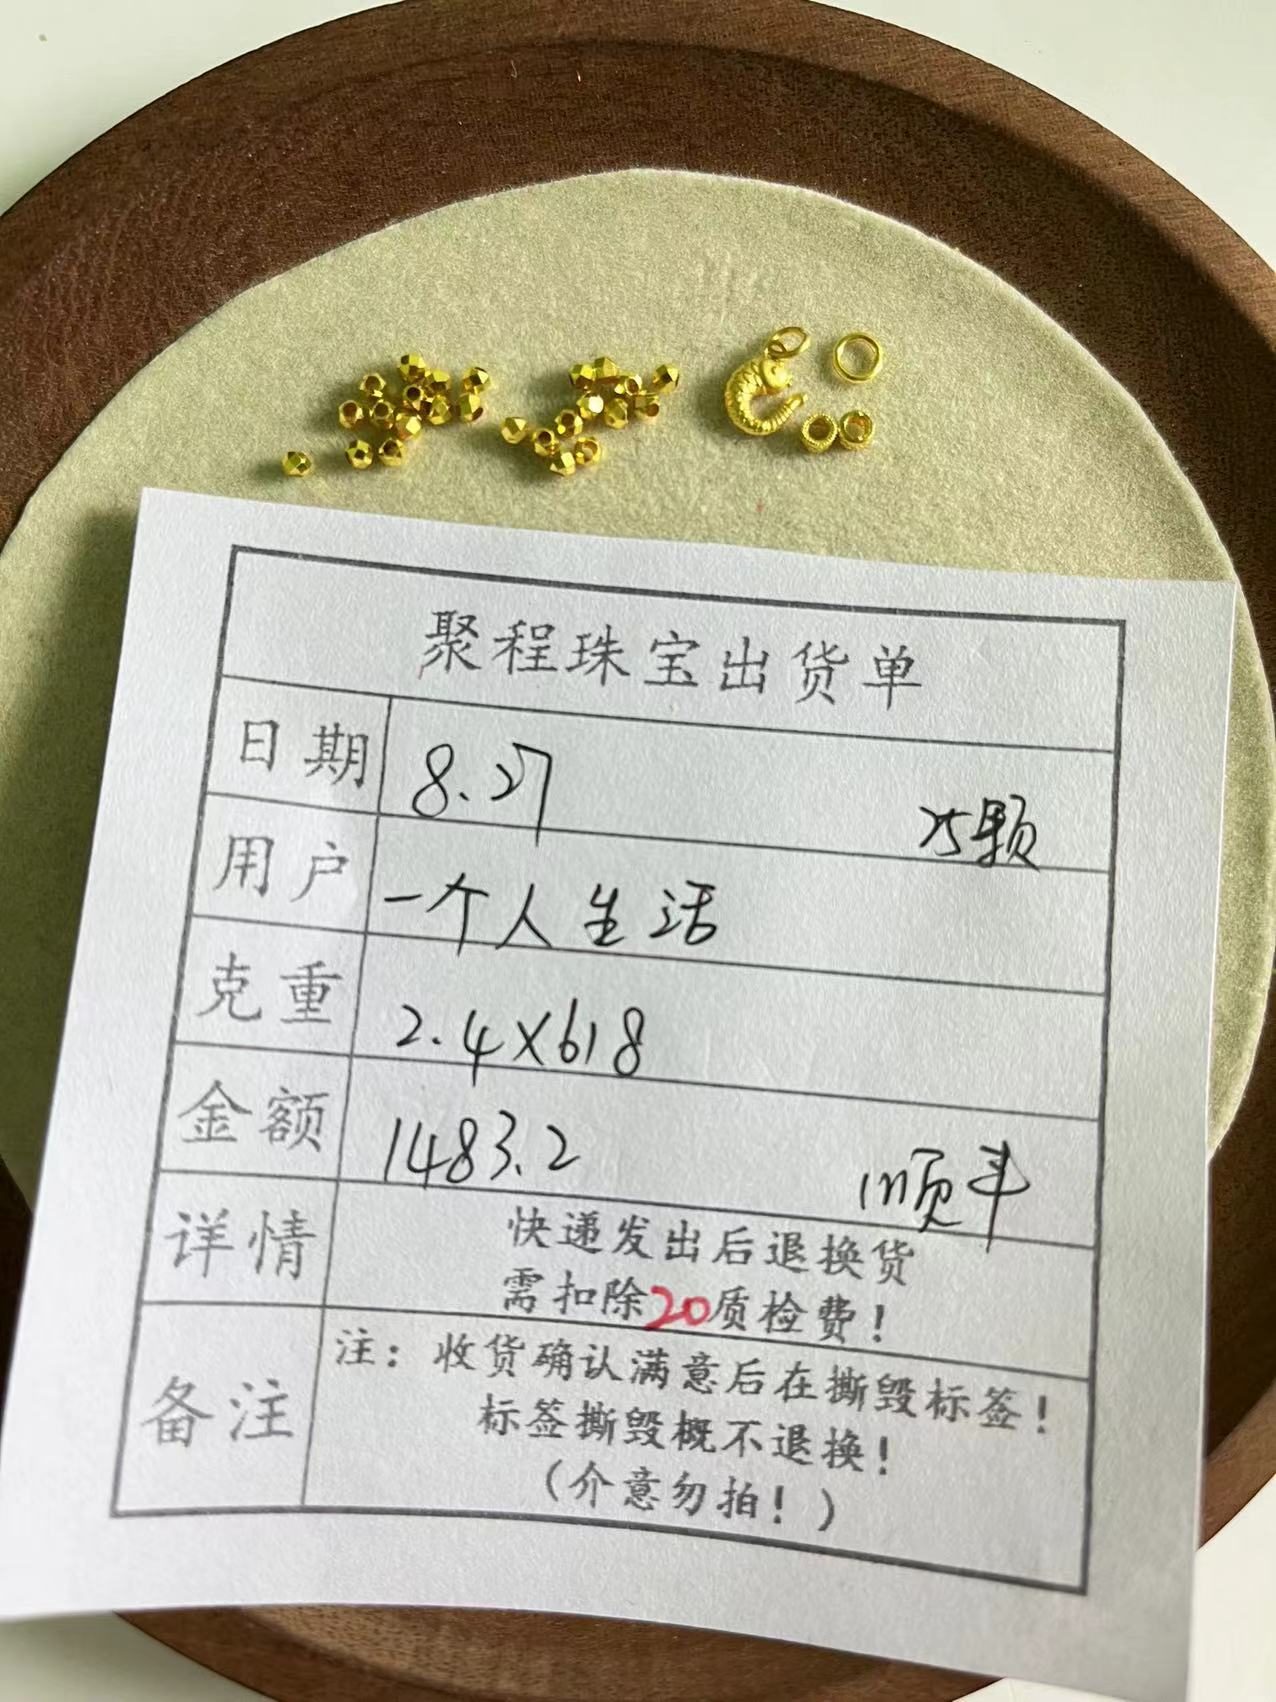 聚程珠宝出货单
日期 8.27 25颗
用户 一个人生活
克重 2.4×618
金额 1483.2 顺丰
详情 快递发出后退换货
需扣除20质检费！
备注 注：收货确认满意后在撕毁标签！
标签撕毁概不退换！
（介意勿拍！）